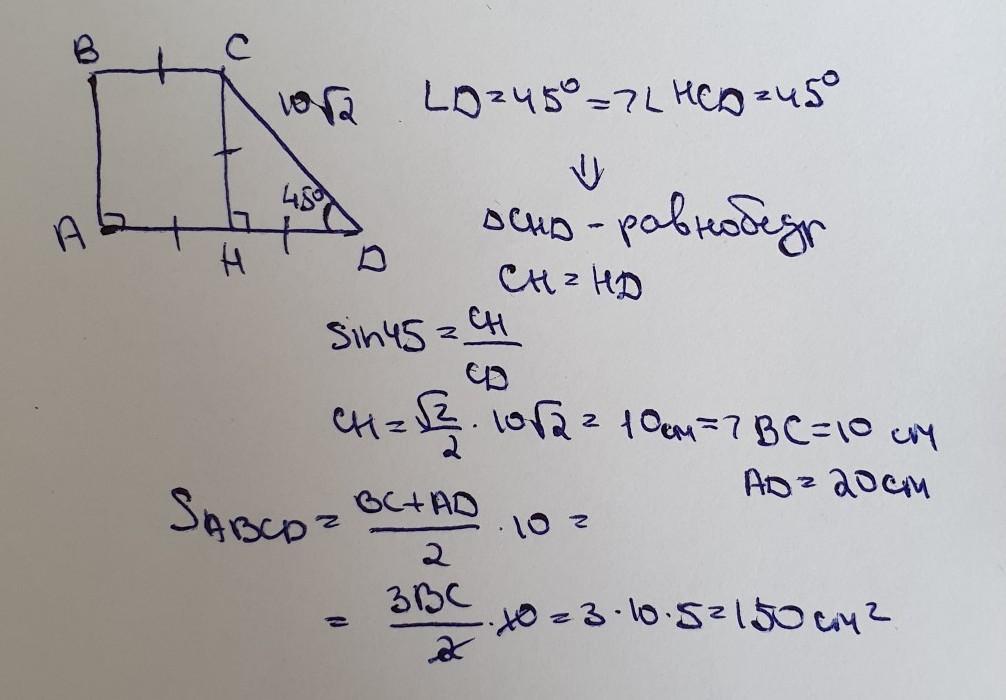 B C
10√2
∠D = 45° => ∠HCD = 45°
⇓
45°
A H D
△CHD - равнобедр
CH = HD
sin45 = CH/CD
CH = √2/2 · 10√2 = 10см => BC = 10 см
AD = 20см
S ABCD = (BC+AD)/2 · 10 =
= 3BC/2 · 10 = 3 · 10 · 5 = 150 см²